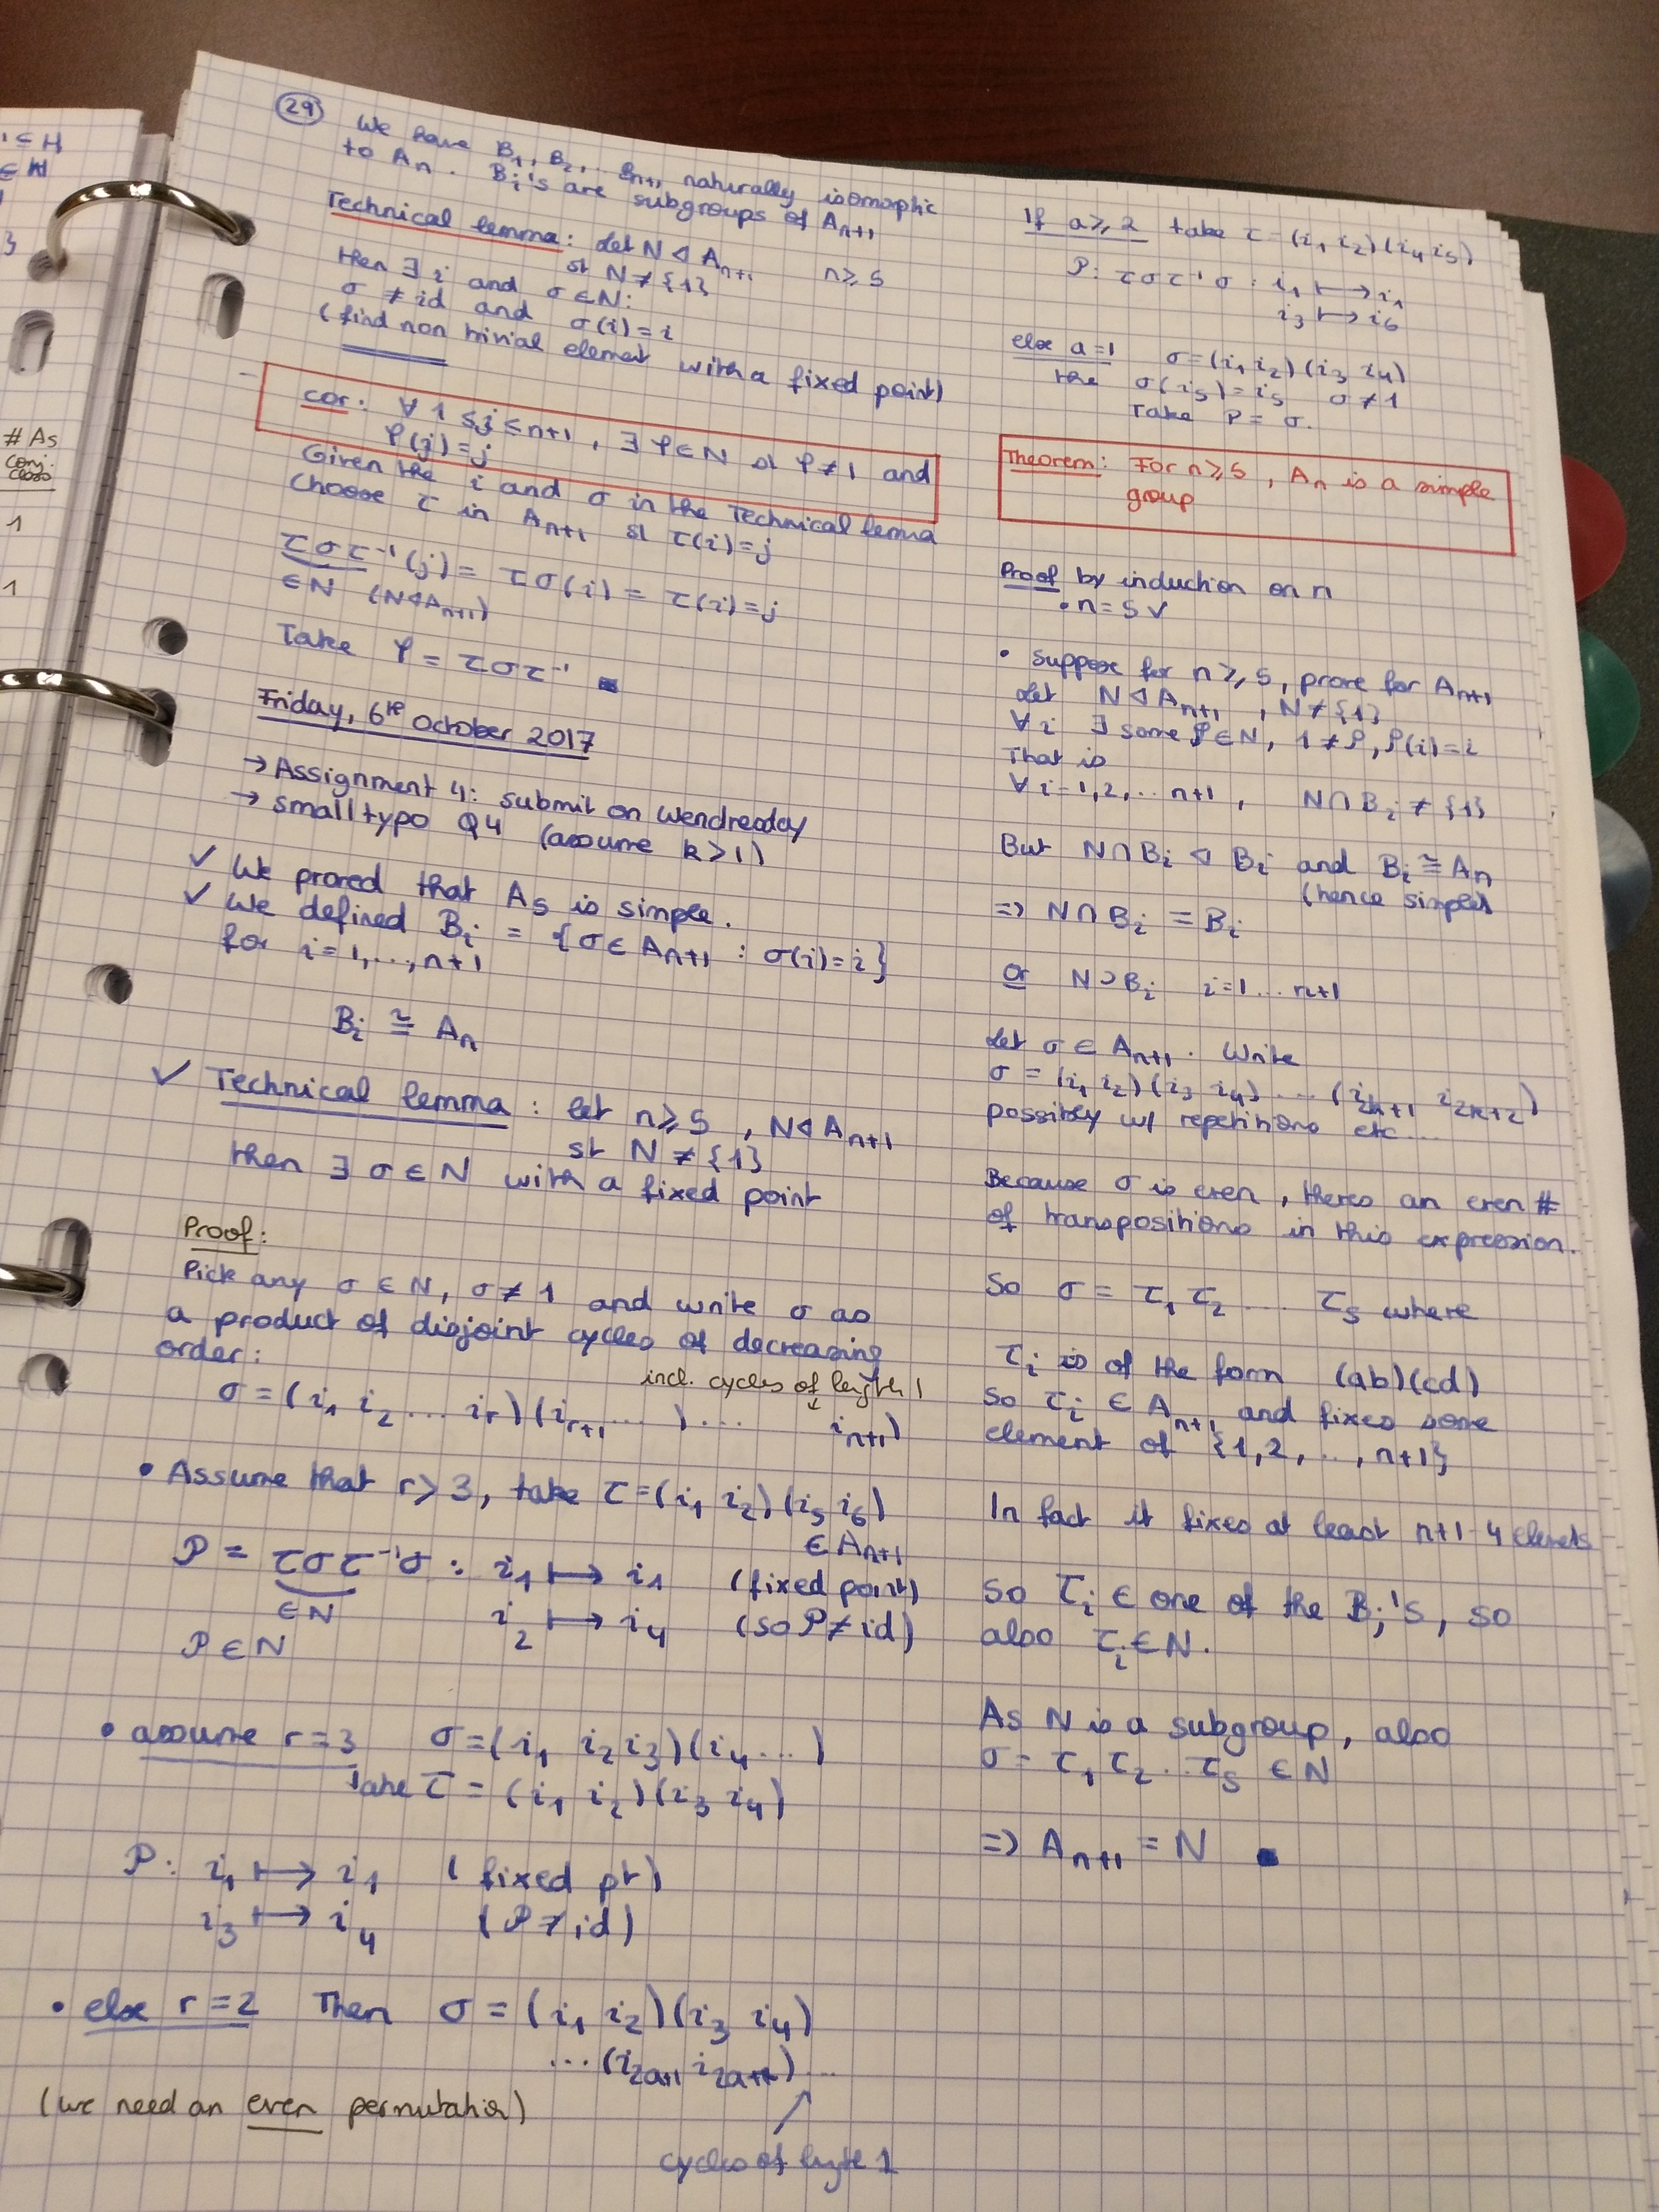 1 ⊆ H
⊆ H
3
# A5
conj.
class
1
1
29
We have B₁, B₂, ... Bₙ₊₁ naturally isomorphic
to Aₙ. Bᵢ's are subgroups of Aₙ₊₁
Technical lemma: Let N ◁ Aₙ₊₁ n ≥ 5
st N ≠ {1}
then ∃ i and σ ∈ N:
σ ≠ id and σ(i) = i
(find non trivial element with a fixed point)
cor: ∀ 1 ≤ j ≤ n+1, ∃ φ ∈ N st φ ≠ 1 and
φ(j) = j
Given the i and σ in the Technical lemma
choose τ in Aₙ₊₁ st τ(i) = j
τστ⁻¹(j) = τσ(i) = τ(i) = j
∈ N (N ◁ Aₙ₊₁)
Take φ = τστ⁻¹ ■
Friday, 6th October 2017
→ Assignment 4: submit on Wendresday
→ small typo Q4 (assume k > 1)
✓ We proved that A5 is simple.
✓ We defined Bᵢ = {σ ∈ Aₙ₊₁ : σ(i) = i}
for i = 1, ..., n+1
Bᵢ ≅ Aₙ
✓ Technical lemma: let n ≥ 5, N ◁ Aₙ₊₁
st N ≠ {1}
then ∃ σ ∈ N with a fixed point
Proof:
Pick any σ ∈ N, σ ≠ 1 and write σ as
a product of disjoint cycles of decreasing
order:
incl. cycles of length 1
σ = (i₁ i₂ ... iᵣ)(iᵣ₊₁ ... ) ... iₙ₊₁)
• Assume that r > 3, take τ = (i₁ i₂)(i₅ i₆)
∈ Aₙ₊₁
ρ = τστ⁻¹σ : i₁ ↦ i₁ (fixed point)
∈ N i₂ ↦ i₄ (so ρ ≠ id)
ρ ∈ N
• assume r = 3 σ = (i₁ i₂ i₃)(i₄ ... )
take τ = (i₁ i₂)(i₃ i₄)
ρ: i₁ ↦ i₁ (fixed pt)
i₃ ↦ i₄ (ρ ≠ id)
• else r = 2 Then σ = (i₁ i₂)(i₃ i₄)
... (i₂ₐ₊₁ i₂ₐ₊₂) ...
(we need an even permutation)
cycles of lngth 1
If a ≥ 2 take τ = (i₁ i₂)(i₄ i₅)
ρ: τστ⁻¹σ : i₁ ↦ i₁
i₃ ↦ i₆
else a = 1 σ = (i₁ i₂)(i₃ i₄)
the σ(i₅) = i₅ σ ≠ 1
Take ρ = σ.
Theorem: For n ≥ 5, Aₙ is a simple
group
Proof by induction on n
• n = 5 ✓
• suppose for n ≥ 5, prove for Aₙ₊₁
Let N ◁ Aₙ₊₁, N ≠ {1}
∀ i ∃ some ρ ∈ N, 1 ≠ ρ, ρ(i) = i
That is
∀ i = 1, 2, ... n+1, N ∩ Bᵢ ≠ {1}
But N ∩ Bᵢ ◁ Bᵢ and Bᵢ ≅ Aₙ
(hence simple)
=> N ∩ Bᵢ = Bᵢ
Or N ⊃ Bᵢ i = 1 ... n+1
Let σ ∈ Aₙ₊₁. Write
σ = (i₁ i₂)(i₃ i₄) ... (i₂ₖ₊₁ i₂ₖ₊₂)
possibly w/ repetitions etc...
Because σ is even, theres an even #
of transpositions in this expression.
So σ = τ₁ τ₂ ... τₛ where
τᵢ is of the form (ab)(cd)
so τᵢ ∈ Aₙ₊₁ and fixes some
element of {1, 2, ..., n+1}
In fact it fixes at least n+1-4 elements
so τᵢ ∈ one of the Bⱼ's, so
also τᵢ ∈ N.
As N is a subgroup, also
σ = τ₁ τ₂ ... τₛ ∈ N
=> Aₙ₊₁ = N ■